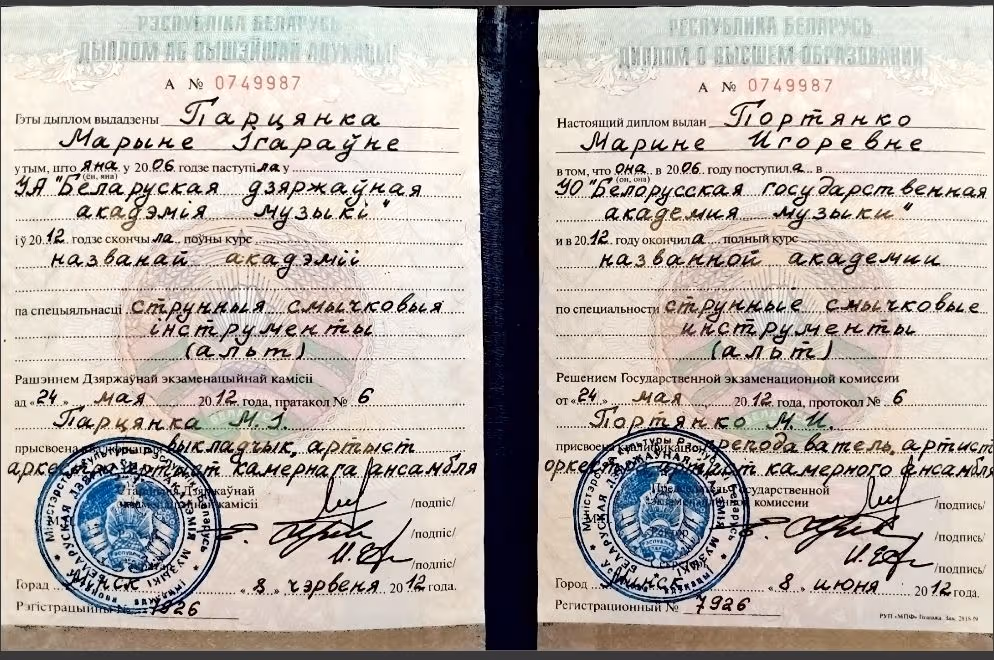 РЭСПУБЛІКА БЕЛАРУСЬ
ДЫПЛОМ АБ ВЫШЭЙШАЙ АДУКАЦЫІ
А № 0749987
Гэты дыплом выдадзены Парцянка
Марыне Ігараўне
у тым, што яна у 2006 годзе паступіла у
(ён, яна)
УА "Беларуская дзяржаўная
акадэмія музыкі"
і ў 2012 годзе скончыла поўны курс
названай акадэміі
па спецыяльнасці струнныя смычковыя
інструменты
(альт)
Рашэннем Дзяржаўнай экзаменацыйнай камісіі
ад «24» мая 2012 года, пратакол № 6
Парцянка М.І.
прысвоена выкладчык, артыст
аркестра артыст камернага ансамбля
Старшыня Дзяржаўнай
экзаменацыйнай камісіі /подпіс/
/подпіс/
/подпіс/
Горад Мінск «8» чэрвеня 2012 года.
Рэгістрацыйны № 7926
РЕСПУБЛИКА БЕЛАРУСЬ
ДИПЛОМ О ВЫСШЕМ ОБРАЗОВАНИИ
А № 0749987
Настоящий диплом выдан Портянко
Марине Игоревне
в том, что она в 2006 году поступила в
(он, она)
УО "Белорусская государственная
академия музыки"
и в 2012 году окончила полный курс
названной академии
по специальности струнные смычковые
инструменты
(альт)
Решением Государственной экзаменационной комиссии
от «24» мая 2012 года, протокол № 6
Портянко М.И.
присвоена преподаватель, артист
оркестра артист камерного ансамбля
Председатель Государственной
экзаменационной комиссии /подпись/
/подпись/
/подпись/
Город Минск «8» июня 2012 года.
Регистрационный № 7926